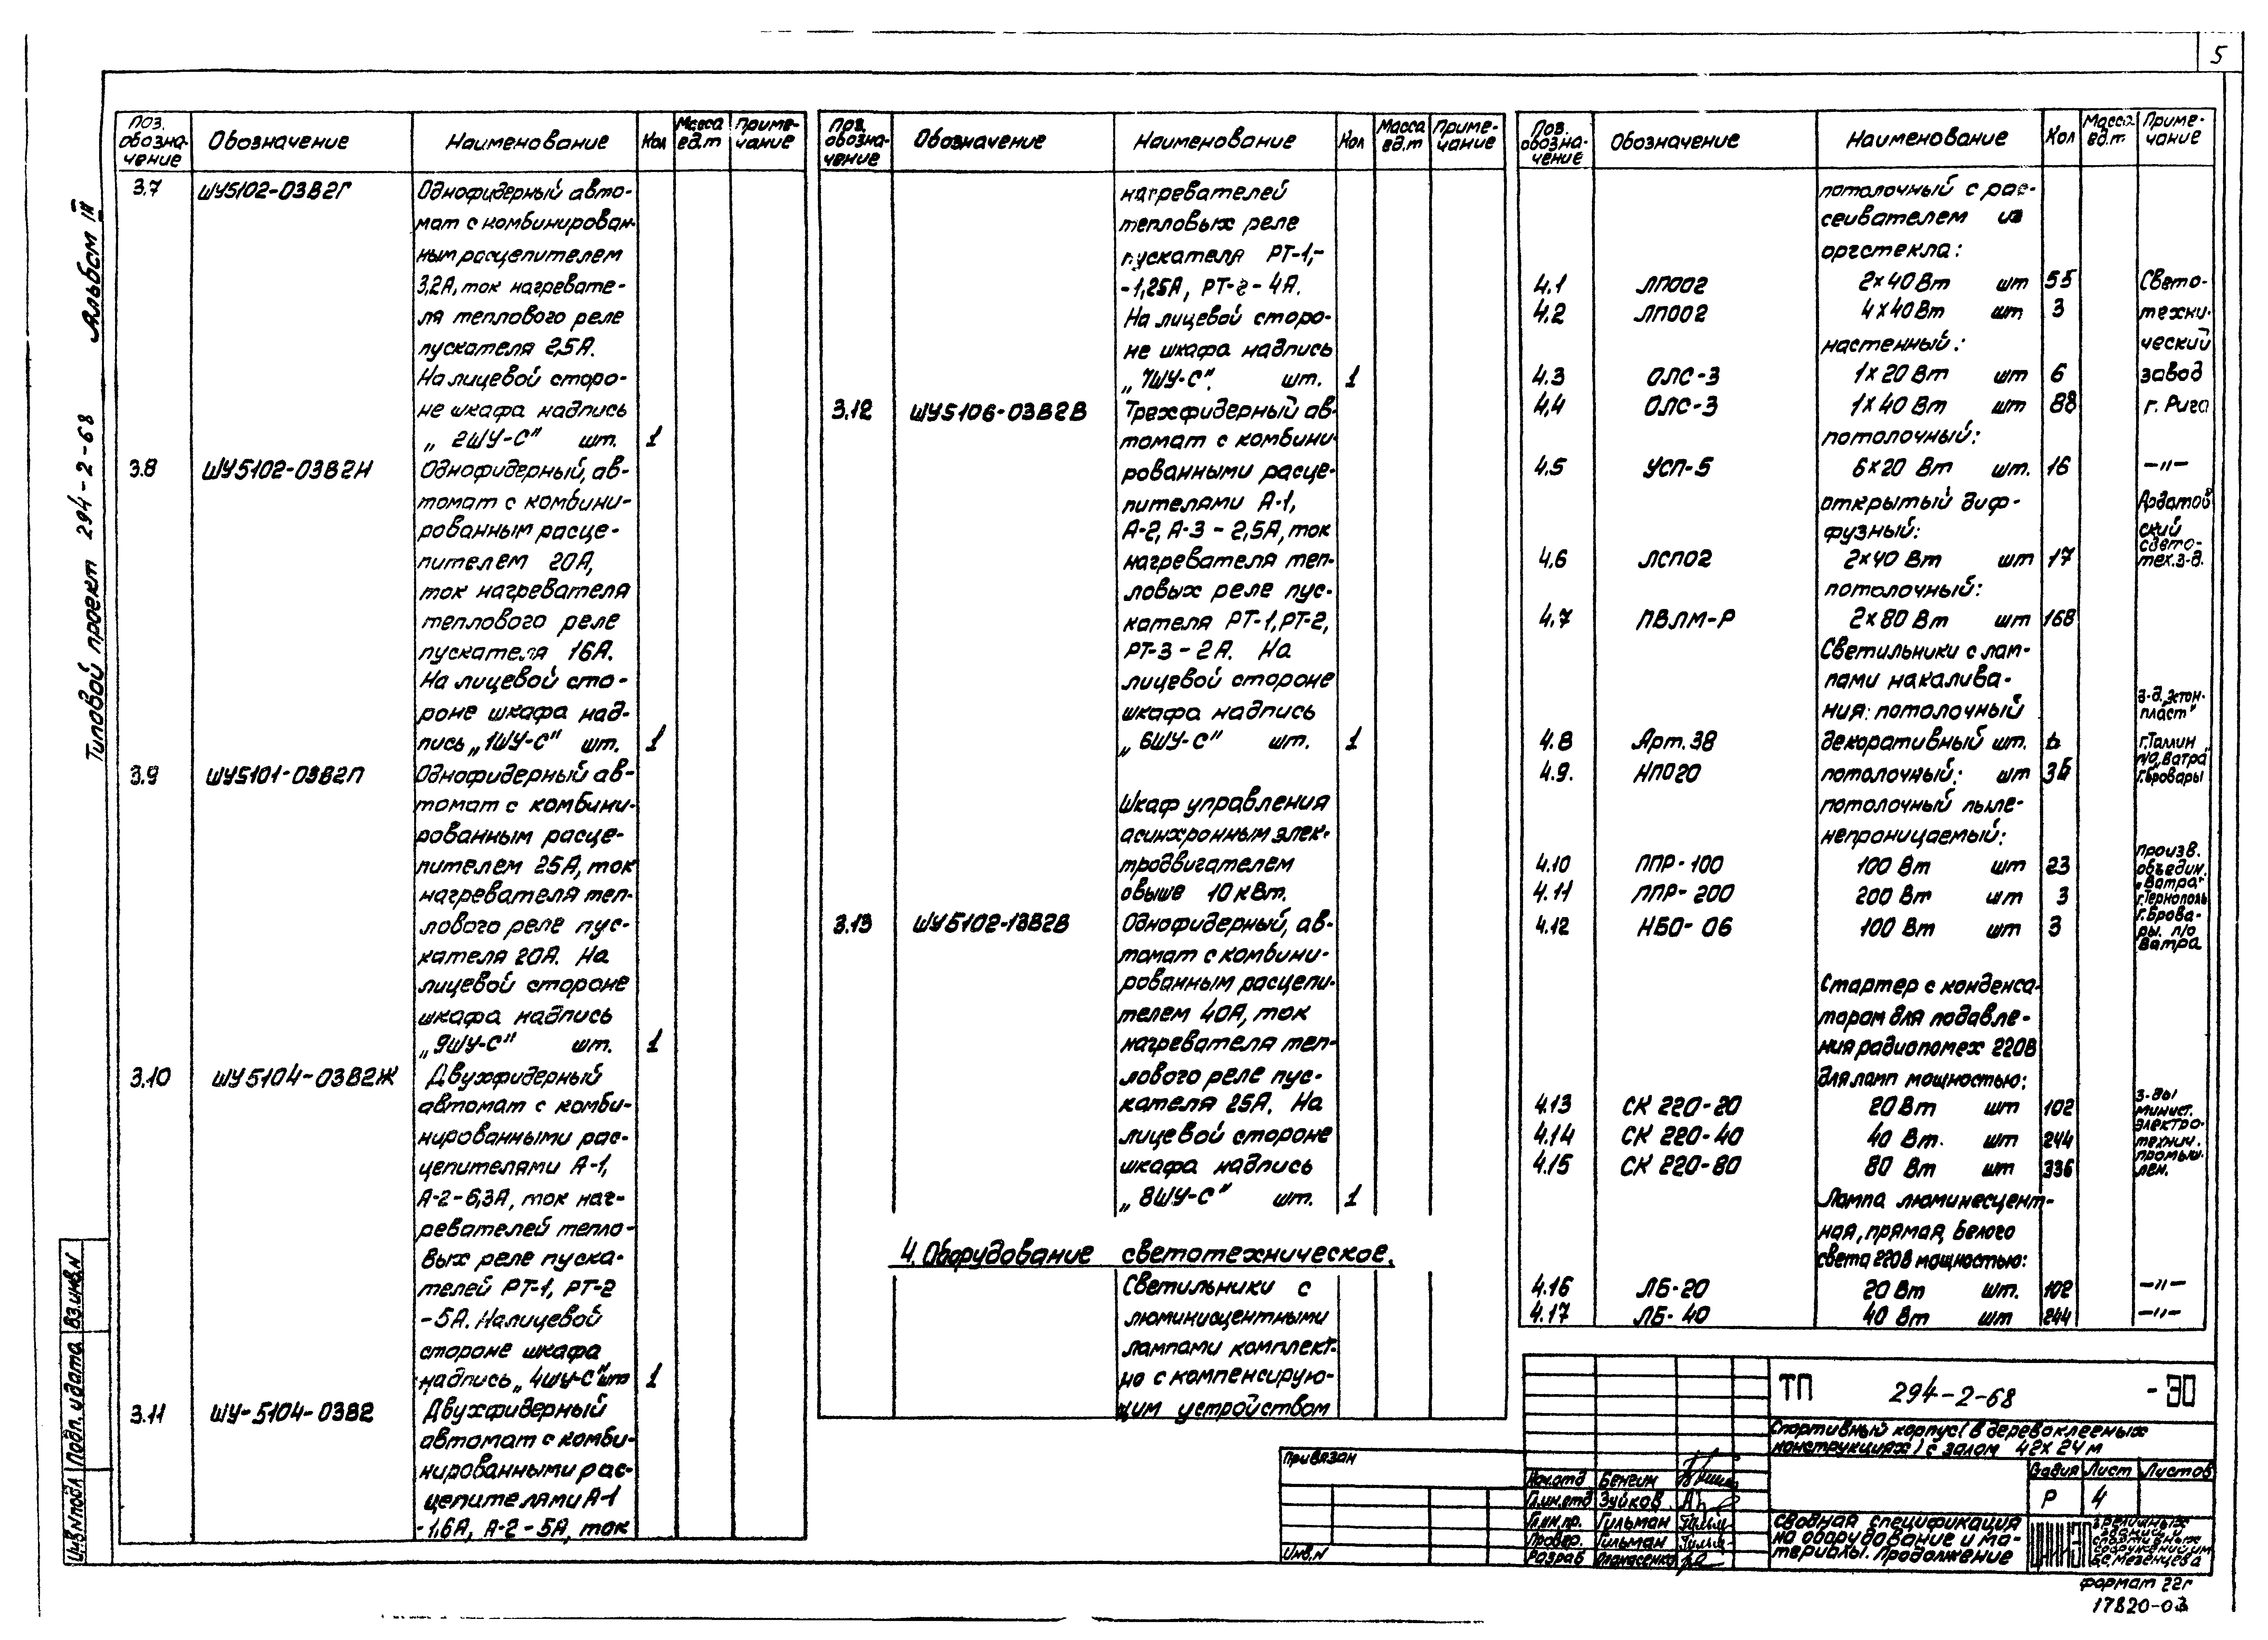 5
Типовой проект 294-2-68 Альбом III
Поз. обозна-чение Обозначение Наименование Кол Масса ед.т Приме-чание
3.7 ШУ5102-03В2Г Однофидерный авто-
мат с комбинирован-
ным расцепителем
3,2А, ток нагревате-
ля теплового реле
пускателя 2,5А.
На лицевой сторо-
не шкафа надпись
„2ШУ-С" шт. 1
3.8 ШУ5102-03В2Н Однофидерный, ав-
томат с комбини-
рованным расце-
пителем 20А,
ток нагревателя
теплового реле
пускателя 16А.
На лицевой сто-
роне шкафа над-
пись „1ШУ-С" шт. 1
3.9 ШУ5101-03В2П Однофидерный ав-
томат с комбини-
рованным расце-
пителем 25А, ток
нагревателя теп-
лового реле пус-
кателя 20А. На
лицевой стороне
шкафа надпись
„9ШУ-С" шт. 1
3.10 ШУ5104-03В2Ж Двухфидерный
автомат с комби-
нированными рас-
цепителями А-1,
А-2-6,3А, ток наг-
ревателей тепло-
вых реле пуска-
телей РТ-1, РТ-2
-5А. На лицевой
стороне шкафа
надпись „4ШУ-С" шт 1
3.11 ШУ-5104-03В2 Двухфидерный
автомат с комби-
нированными рас-
цепителями А-1
-1,6А, А-2-5А, ток
Поз. обозна-чение Обозначение Наименование Кол Масса ед.т Приме-чание
нагревателей
тепловых реле
пускателя РТ-1,-
-1,25А, РТ-2-4А.
На лицевой сторо-
не шкафа надпись
„7ШУ-С". шт. 1
3.12 ШУ5106-03В2В Трехфидерный ав-
томат с комбини-
рованными расце-
пителями А-1,
А-2, А-3-2,5А, ток
нагревателя теп-
ловых реле пус-
кателя РТ-1, РТ-2,
РТ-3-2А. На
лицевой стороне
шкафа надпись
„6ШУ-С" шт. 1
Шкаф управления
асинхронным элек-
тродвигателем
свыше 10 кВт.
3.13 ШУ5102-13В2В Однофидерный, ав-
томат с комбини-
рованным расцепи-
телем 40А, ток
нагревателя теп-
лового реле пус-
кателя 25А. На
лицевой стороне
шкафа надпись
„8ШУ-С" шт. 1
4. Оборудование светотехническое.
Светильники с
люминисцентными
лампами комплект-
но с компенсирую-
щим устройством
Поз. обозна-чение Обозначение Наименование Кол Масса ед.т. Приме-чание
потолочный с рас-
сеивателем из
оргстекла:
4.1 ЛПО02 2х40 Вт шт 55 Свето-
4.2 ЛПО02 4х40 Вт шт 3 техни-
настенный: ческий
4.3 ОЛС-3 1х20 Вт шт 6 завод
4.4 ОЛС-3 1х40 Вт шт 88 г. Рига
потолочный:
4.5 УСП-5 6х20 Вт шт. 16 -"-
открытый диф- Ардатов
фузный: ский
свето-
4.6 ЛСП02 2х40 Вт шт 17 тех.з-д.
потолочный:
4.7 ПВЛМ-Р 2х80 Вт шт 168
Светильники с лам-
пами накалива-
ния: потолочный з-д „Эстон-пласт"
4.8 Арт.38 декоративный шт. 6 г.Таллин
4.9. НПО20 потолочный: шт п/о „Ватра" г.Бровары
потолочный пыле-
непроницаемый:
4.10 ППР-100 100 Вт шт 23 Произв. объедин.
4.11 ППР-200 200 Вт шт 3 „Ватра" г.Тернополь
4.12 НБО-06 100 Вт шт 3 г.Брова-ры. п/о Ватра
Стартер с конденса-
тором для подавле-
ния радиопомех 220В
для ламп мощностью:
4.13 СК 220-20 20 Вт шт 102 з-ды минист.
4.14 СК 220-40 40 Вт. шт 244 электро-технич.
4.15 СК 220-80 80 Вт шт 336 промыш-лен.
Лампа люминесцент-
ная, прямая, белого
света 220В мощностью:
4.16 ЛБ-20 20 Вт шт. 102 -"-
4.17 ЛБ-40 40 Вт шт 244 -"-
Инв.N подл Подп. и дата Вз.инв.N
Привязан
Инв.N
ТП 294-2-68 -ЭО
Спортивный корпус (в деревоклееных
конструкциях) с залом 42х24 м
Нач.отд Бенгин
Гл.ин.отд Зуйков
Гл.ин.пр. Гильман
Провер. Гильман
Разраб Опанасенко
Стадия Лист Листов
Р 4
Сводная спецификация
на оборудование и ма-
териалы. Продолжение
ЦНИИЭП
зрелищных
зданий и
спортивных
сооружений им.
Б.С. Мезенцева
формат 22г
17820-03